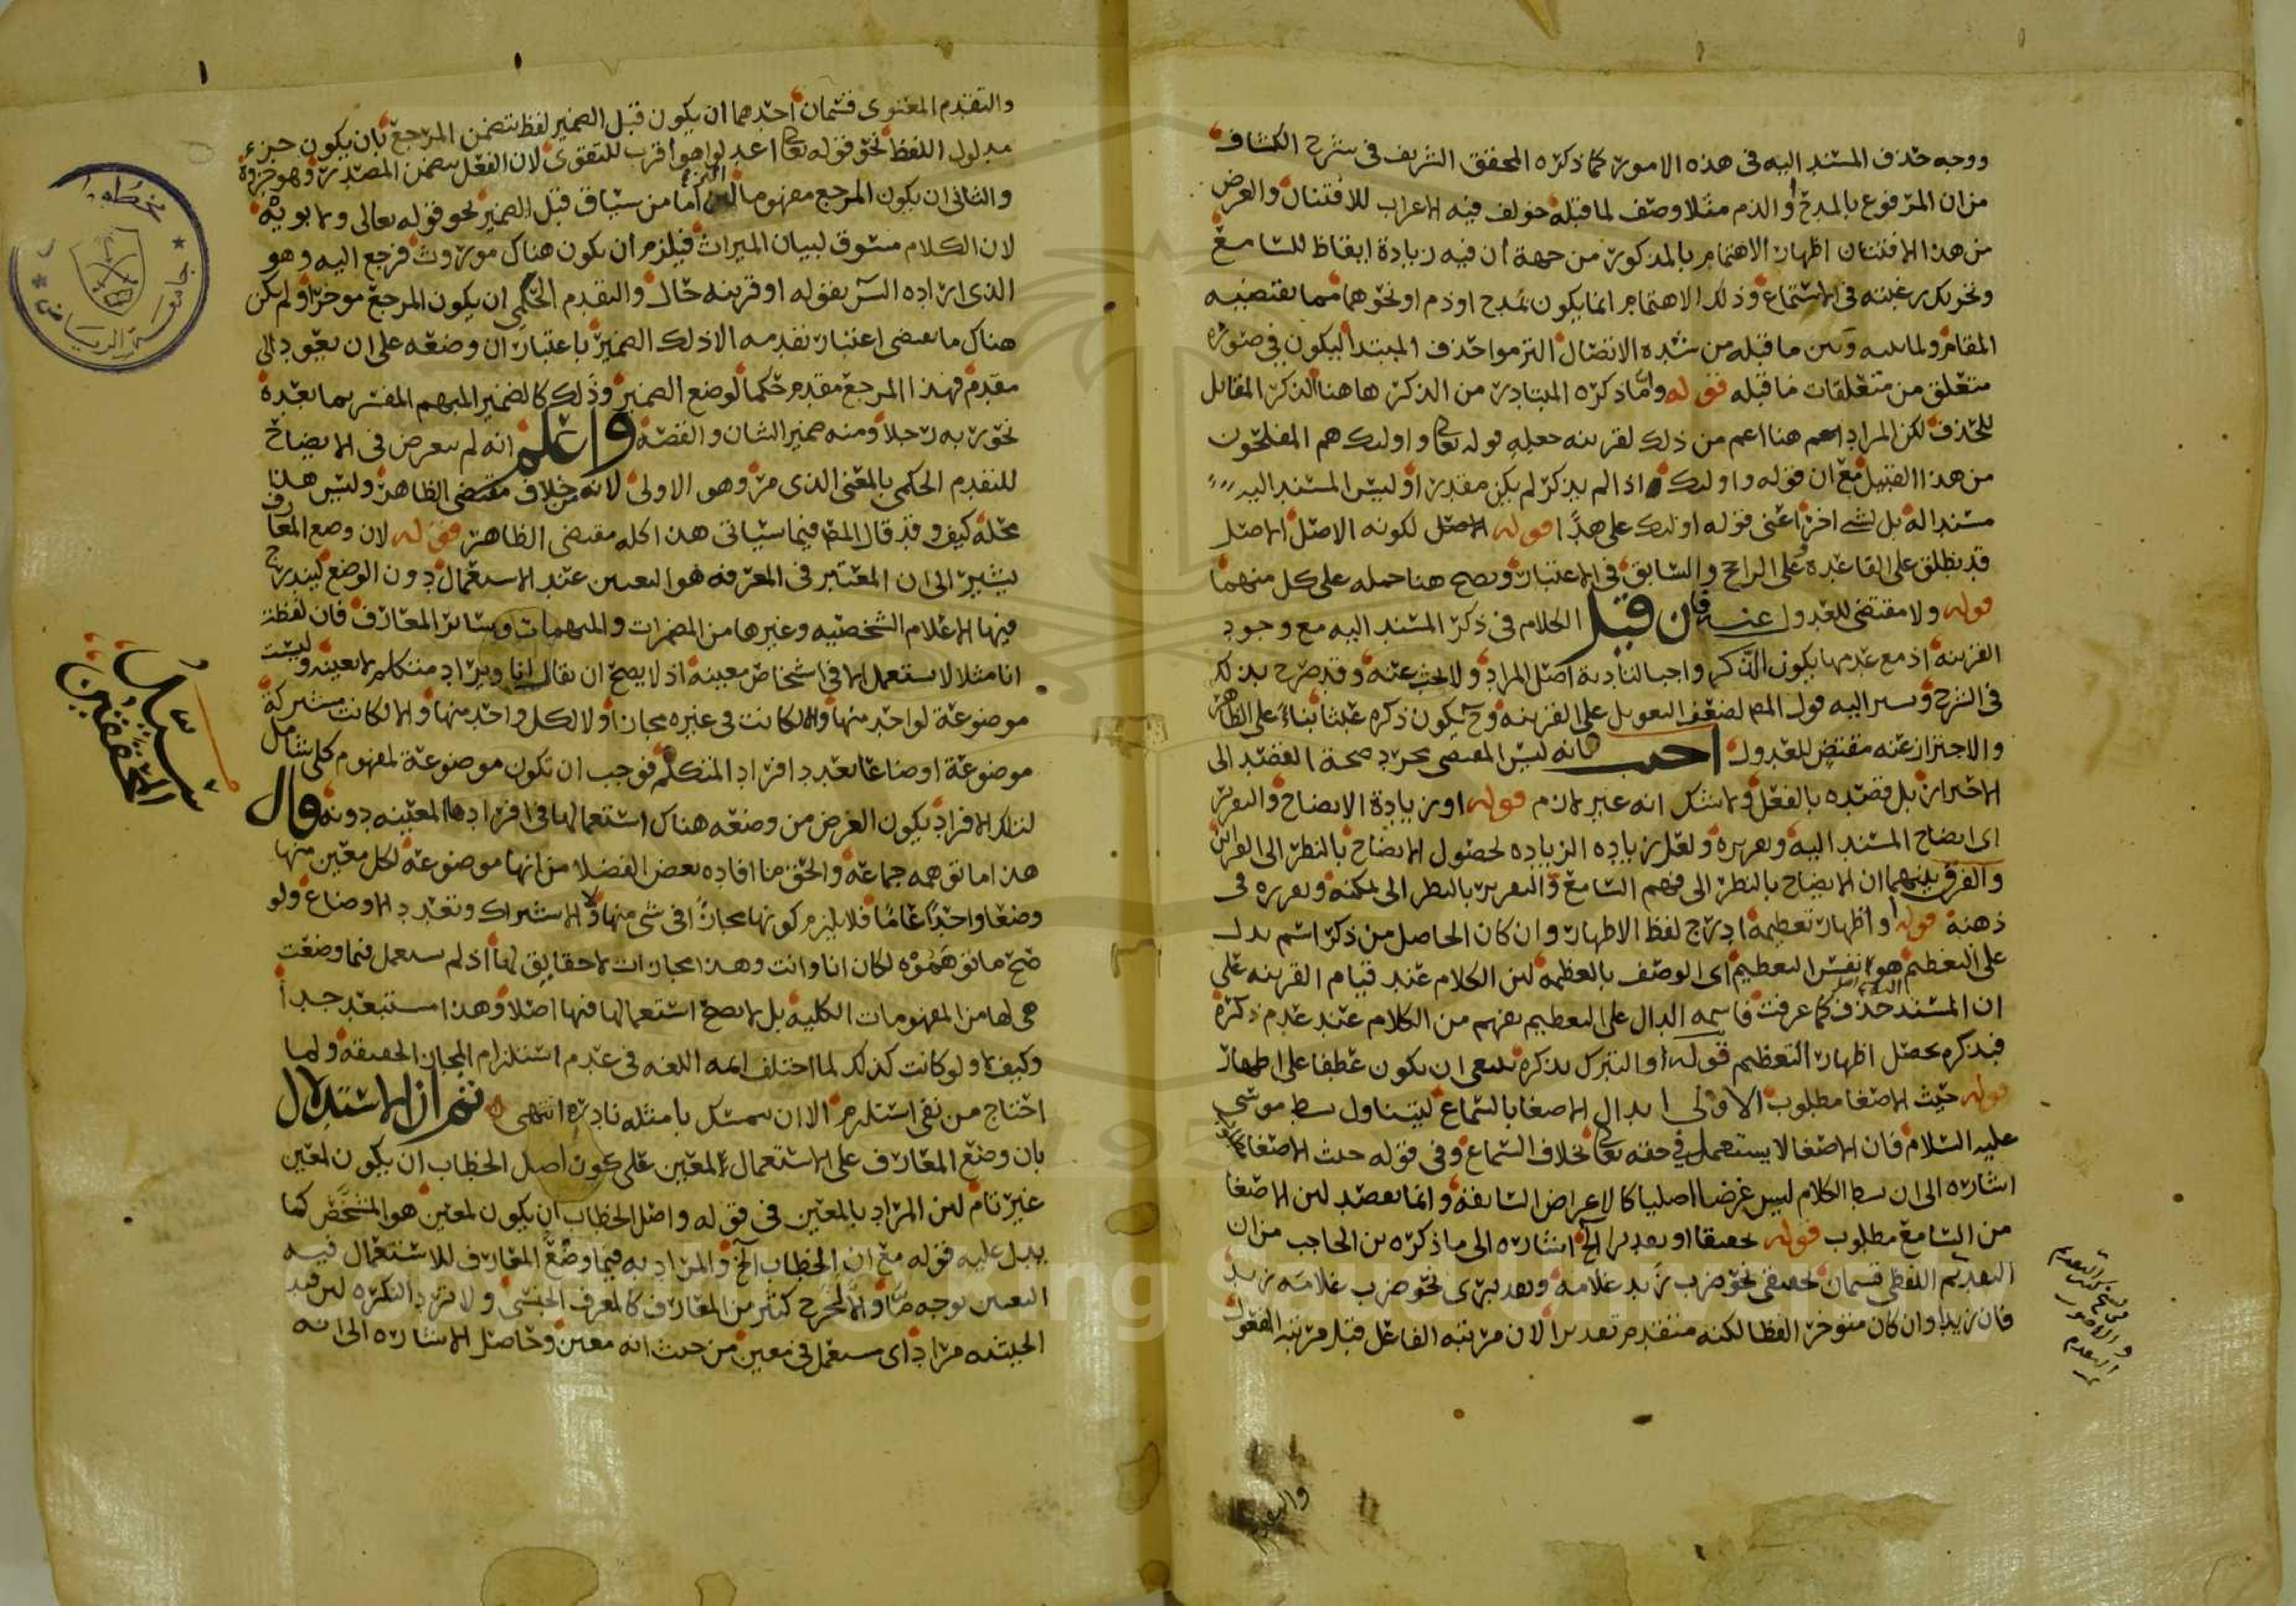 ووجه حذف المسند اليه فى هذه الامور كما ذكره المحقق الشريف فى شرح الكشاف
من ان المرفوع بالمدح او الذم مثلا وصف لما قبله خولف فيه الاعراب للافتنان والغرض
من هذا الافتنان اظهار الاهتمام بالمذكور من جهة ان فيه زيادة ايقاظ للسامع
وتحريك رغبته فى الاستماع وذلك الاهتمام انما يكون لمدح او ذم او نحوهما مما يقتضيه
المقام ولما بينه وبين ما قبله من شدة الاتصال التزموا حذف المبتدا ليكون فى صورة
متعلق من متعلقات ما قبله قوله واما ذكره المتبادر من الذكر هاهنا الذكر المقابل
للحذف لكن المراد هنا اعم من ذلك لقرينة جعله قوله تعالى واولئك هم المفلحون
من هذا القبيل مع ان قوله واولئك اذا لم يذكر لم يكن مقدرا وليس المسند اليه
مسندا له بل لشى اخر اعنى قوله اولئك على هدًا قوله الاصل لكونه الاصل الاصل
قد يطلق على القاعدة وعلى الراجح والسابق فى الاعتبار ويصح هنا حمله على كل منهما
قوله ولا مقتضى للعدول عنه فان قيل الكلام فى ذكر المسند اليه مع وجود
القرينة اذ مع عدمها يكون الذكر واجبا لتادية اصل المراد ولا بحث عنه وقد صرح بذلك
فى الشرح ويشير اليه قول المص لضعف التعويل على القرينة وح يكون ذكره عبثا بناءً على الظاهر
والاحتراز عنه مقتض للعدول اجيب بانه ليس المقتضى مجرد صحة القصد الى
الاحتراز بل قصده بالفعل ولا شك انه غير لازم قوله او زيادة الايضاح والتقرير
اى ايضاح المسند اليه وتقريره ولعل زيادة الزيادة لحصول الايضاح بالنظر الى القرائن
والفرق بينهما ان الايضاح بالنظر الى فهم السامع والتقرير بالنظر الى تمكنه وتقرره فى
ذهنه قوله او اظهار تعظيمه ادرج لفظ الاظهار وان كان الحاصل من ذكر اسم يدل
على التعظيم هو نفس التعظيم اى الوصف بالعظمة لان الكلام عند قيام القرينة على
ان المسند اليه حذف كما عرفت فاسمه الدال على التعظيم يفهم من الكلام عند عدم ذكره
فبذكره يحصل اظهار التعظيم قوله او التبرك بذكره ينبغى ان يكون عطفا على اظهار
قوله حيث الاصغا مطلوب الاولى ابدال الاصغا بالسماع ليتناول بسط موسى
عليه السلام فان الاصغا لا يستعمل فى حقه تعالى بخلاف السماع وفى قوله حيث الاصغا
اشارة الى ان بسط الكلام ليس غرضا اصليا كالاعراض السابقة وانما يقصد لان الاصغا
من السامع مطلوب قوله تحقيقا او تقديرا الخ اشارة الى ما ذكره بن الحاجب من ان
التقديم اللفظى قسمان تحقيقى نحو ضرب زيد غلامه وتقديرى نحو ضرب غلامه زيد
فان زيدا وان كان متوخرا لفظا لكنه متقدم تقديرا لان مرتبة الفاعل قبل مرتبة المفعول
والتقدم
والتقدم المعنوى قسمان احدهما ان يكون قبل الضمير لفظ يتضمن المرجع بان يكون جزء
مدلول اللفظ نحو قوله تعالى اعدلوا هو اقرب للتقوى لان الفعل يتضمن المصدر وهو جزوه
والثانى ان يكون المرجع مفهوما التزاما من سياق قبل الضمير نحو قوله تعالى ولابويه
لان الكلام مسوق لبيان الميراث فيلزم ان يكون هناك موروث فرجع اليه وهو
الذى اراده السر بقوله او قرينة حال والتقدم الحكمى ان يكون المرجع موخرا ولم يكن
هناك ما يقتضى اعتبار تقدمه الا ذلك الضمير باعتبار ان وضعه على ان يعود الى
مقدم فهذا المرجع مقدم حكما لوضع الضمير وذلك كالضمير المبهم المفسر بما بعده
نحو ربه رجلا ومنه ضمير الشان والقصة واعلم انه لم يتعرض فى الايضاح
للتقدم الحكمى بالمعنى الذى مر وهو الاولى لانه خلاف مقتضى الظاهر وليس هذا
محله كيف وقد قال المص فيما سياتى هذا كله مقتضى الظاهر قوله لان وضع المعارف
يشير الى ان المعتبر فى المعرفة هو التعيين عند الاستعمال دون الوضع ليندرج
فيها الاعلام الشخصيه وغيرها من المضمرات والمبهمات وسائر المعارف فان لفظة
انا مثلا لا يستعمل الا فى اشخاص معينة اذ لا يصح ان يقال انا ويراد متكلم لا بعينه وليست
موضوعة لواحد منها والا لكانت فى غيره مجازا ولا لكل واحد منها والا لكانت مشتركة
موضوعة اوضاعا بعدد افراد المتكلم فوجب ان تكون موضوعة لمفهوم كلى شامل
لتلك الافراد يكون الغرض من وضعه هناك استعمالها فى افرادها المعينه دونه قال
هذا ما توهمه جماعة والحق ما افاده بعض الفضلا من انها موضوعة لكل معين منها
وضعا واحدًا عامًا فلا يلزم كونها مجازًا فى شى منها ولا الاشتراك وتعدد الاوضاع ولو
صح ما توهموه لكان انا وانت وهذا مجازات لا حقايق لها اذ لم تستعمل فيما وضعت
هى لها من المفهومات الكلية بل لا يصح استعمالها فيها اصلا وهذا مستبعد جدا
وكيف لا ولو كانت كذلك لما اختلف ائمه اللغه فى عدم استلزام المجاز الحقيقه ولما
احتاج من نفى استلزم الا ان يتمسك بامثله نادره انتهى ثم ان الاستدلال
بان وضع المعارف على الاستعمال لمعين على كون اصل الخطاب ان يكون لمعين
غير تام لان المراد بالمعين فى قوله واصل الخطاب ان يكون لمعين هو المشخص كما
يدل عليه قوله مع ان الخطاب الخ والمراد به فيما وضع المعارف للاستعمال فيه
التعيين بوجه ما والا لخرج كثير من المعارف كالمعرف الجنسى ولا ترد النكرة لان قيد
الحيثيه مراد اى يستعمل فى معين من حيث انه معين وحاصل الاشاره الى انه